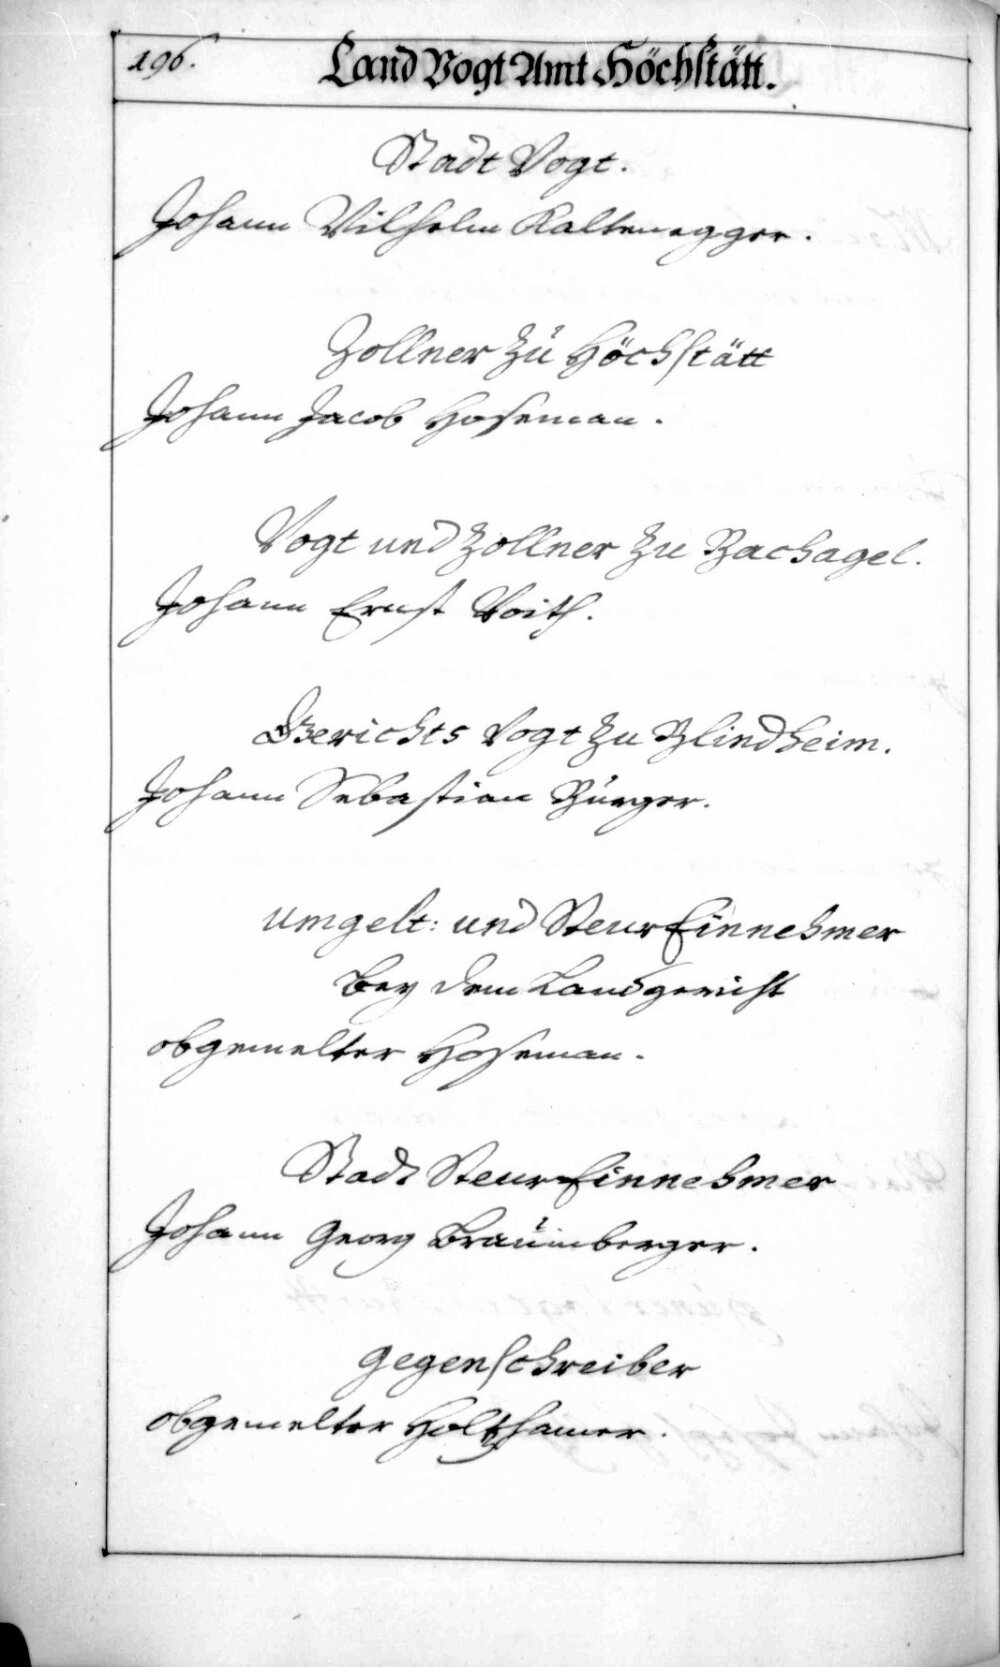 196.
Land Vogt Amt Höchstätt.
Stadt Vogt.
Johann Wilhelm Kaltenegger.
Zollner zü Höchstätt
Johann Jacob Hoseman.
Vogt und Zollner zu Bachagel.
Johann Ernst Voith.
Gerichts Vogt zu Blindheim.
Johann Sebastian Bürger.
umgelt: und Steur Einnehmer
bey dem Landgericht
obgemelter Hoseman.
Stadt Steur Einnehmer
Johann Georg
gegenschreiber
obgemelter Holzhamer.